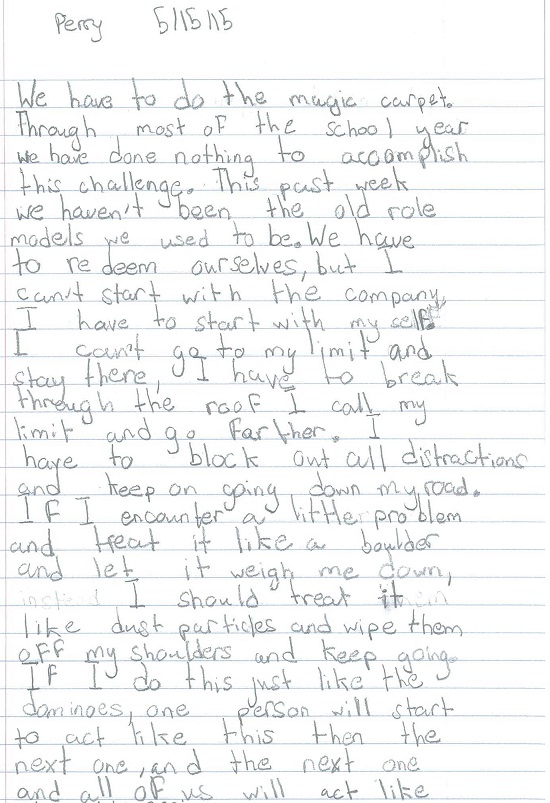 Perry 5/15/15
We have to do the magic carpet.
Through most of the school year
we have done nothing to accomplish
this challenge. This past week
we haven't been the old role
models we used to be. We have
to re deem ourselves, but I
can't start with the company,
I have to start with my self
I can't go to my limit and
stay there, I have to break
through the roof I call my
limit and go farther. I
have to block out all distractions
and keep on going down my road.
If I encounter a little problem
and treat it like a boulder
and let it weigh me down,
instead I should treat it
like dust particles and wipe them
off my shoulders and keep going.
If I do this just like the
dominoes, one person will start
to act like this then the
next one, and the next one
and all of us will act like